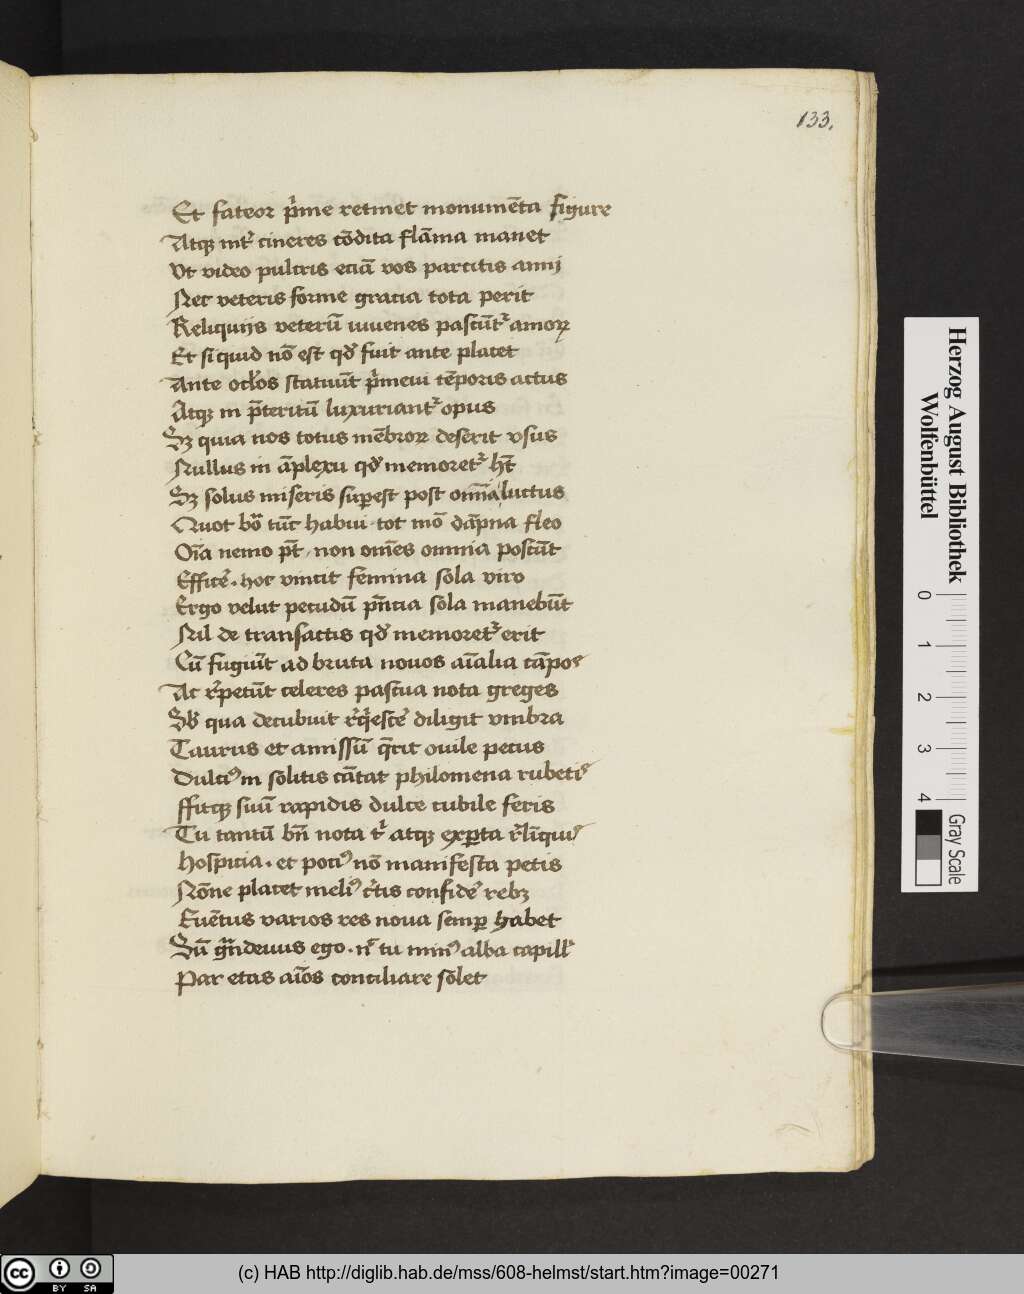 133.
Et fateor p̉me retinet monumēta figure
Atqꝫ int̉ cineres cōdita flāma manet
Vt video pulcris eciā vos parcitis annj
Nec veteris forme gracia tota perit
Reliquijs veterū iuuenes pascūt᷑ amoꝝ
Et si quid nō est qd̉ fuit ante placet
Ante oclos̄ statuūt p̉meui tēporis actus
Atqꝫ in p̄teritū luxuriant᷑ opus
Sꝫ quia nos totus mēbroꝝ deserit vsus
Nullus in āplexu qd̉ memoret᷑ h̄t
Sꝫ solus miseris suꝑest post om̄ia luctus
Quot bōͣ tūc habui tot mō dāpna fleo
Oīa nemo pt̄ / non om̄es omnia poscūt
Efficē̉ . hoc vincit femina sola viro
Ergo velut pecudū pn̄cia sola manebūt
Nil de transactis qd̉ memoret᷑ erit
Cū fugiūt ad bruta nouos aīalia cāpos
Ac r̉petūt celeres pascua nota greges
Sb̉ qua decubuit r̉q̉escē̉ diligit vmbra
Taurus et amissū q̄rit ouile pecus
Dulciꝰ in solitis cātat philomena rubetis
ffitqꝫ suū rapidis dulce cubile feris
Tu tantū bn̄ nota t᷑ atqꝫ exꝑta r̉līquis
Hospicia . et pociꝰ nō manifesta petis
Nōne placet meliꝰ c̉tis confidē̉ rebꝫ
Euētus varios res noua semꝑ habet
Sū gͣndeuus ego . nͨ tu minꝰ alba capill᷑
Par etas aīos conciliare solet
Herzog August Bibliothek
Wolfenbüttel
0 1 2 3 4
Gray Scale
cc BY SA
(c) HAB http://diglib.hab.de/mss/608-helmst/start.htm?image=00271